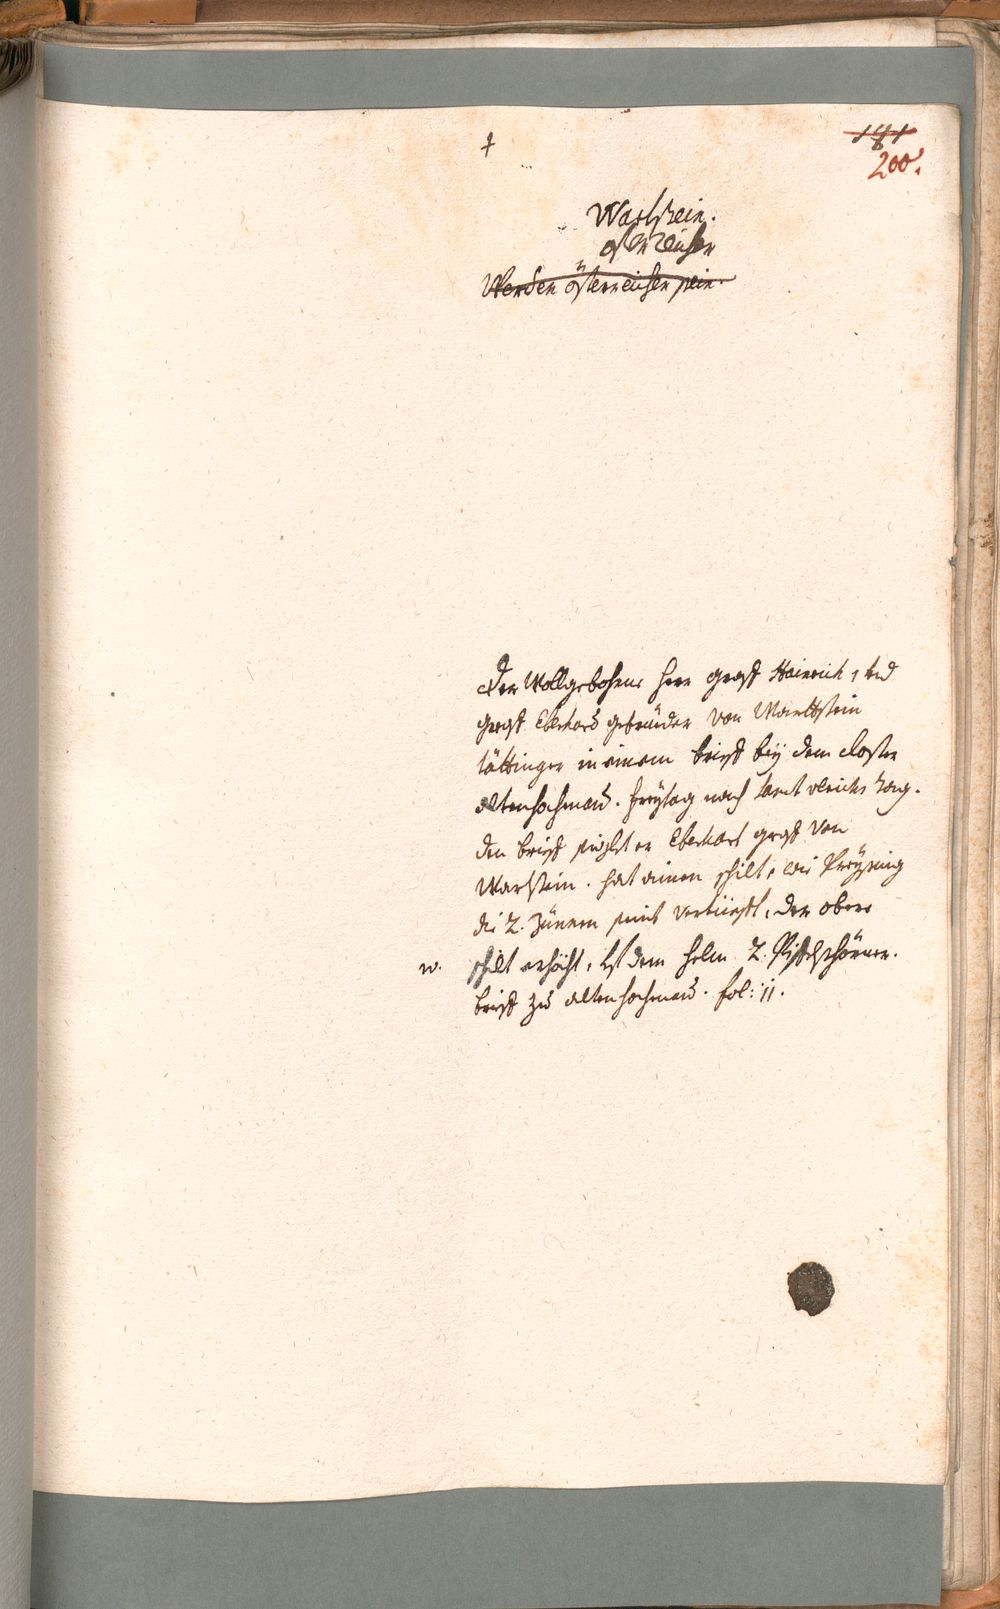 191
200.
Warstein.
österreicher
Werden österreicher sein.
Der Wollgebohrne herr graff Hainrich, und
graff Eberhard gebrüeder von Warttstein
in einem brieff bey dem closter
altenhochenau. freytag nach sanct ulrichs tag.
den brieff siglet er Eberhart graff von
Warstein. hat ainen schilt, wie Preysing
die 2. Zünnen seint vertiefft, der obere
w. schilt erhöcht, uf dem helm 2. Püfflshörner.
brieff zu altenhochenau. fol: 11.